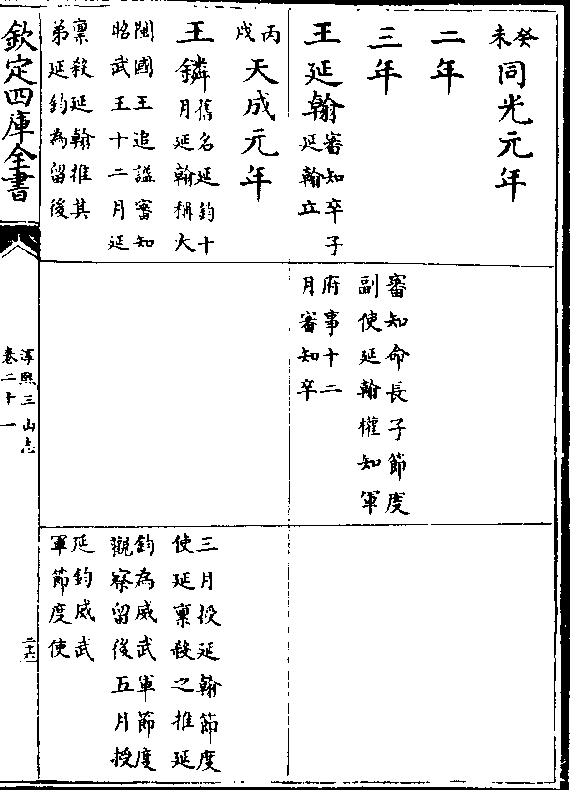 癸未
同光元年
二年
三年
王延翰
審知卒子
延翰立
丙戌
天成元年
王鏻
舊名延鈞十
月延翰稱大
閩國王追諡審知
昭武王十二月延
稟殺延翰推其
弟延鈞為留後
審知命長子節度
副使延翰權知軍
府事十二
月審知卒
三月授延翰節度
使延稟殺之推延
鈞為威武軍節度
觀察留後五月授
延鈞威武
軍節度使
欽定四庫全書
淳熙三山志
卷二十一
二十六